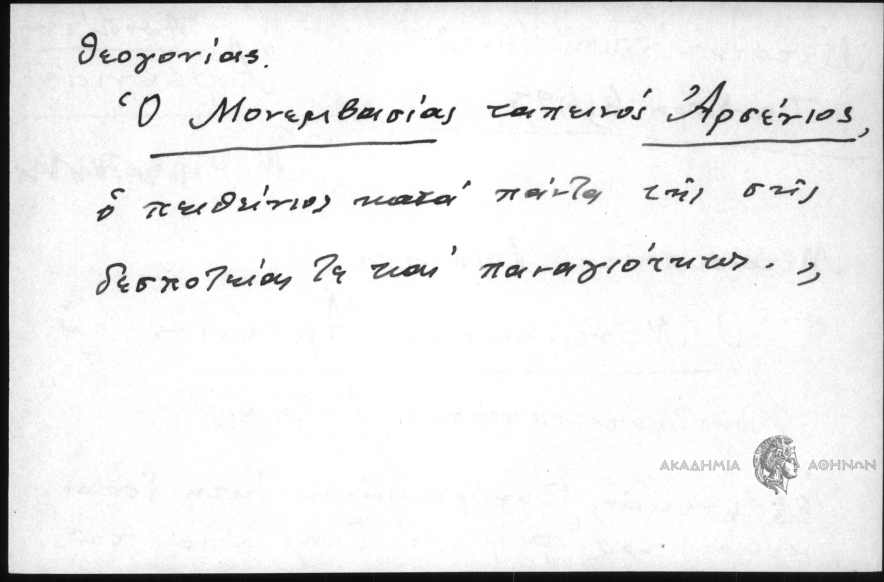 θεογονίας.
Ὁ Μονεμβασίας ταπεινός Ἀρσένιος,
ὁ πειθείνιος κατά πάντα τῆς σῆς
δεσποτείας τε καί παναγιότητος. „
ΑΚΑΔΗΜΙΑ ΑΘΗΝΩΝ